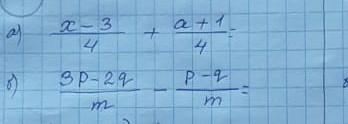 а) (x-3)/4 + (a+1)/4 =
б) (3p-2q)/m - (p-q)/m =